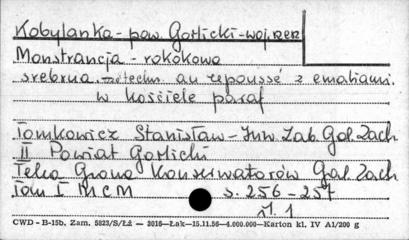 Kobylanka - pow. Gorlicki - woj. rzer
Monstrancja - rokokowa
srebrna au repoussé z emaliami.
w kościele paraf
Tomkowicz Stanisław - Inw. Zab. Gal. Zach
II Powiat Gorlicki
Teka Grona Konserwatorów Gal. Zach
Tom I MCM s. 256 - 257
il. 1
CWD - B-15b. Zam. 5823/S/Łż — 3016—Łak—15.11.56—4.000.000—Karton kl. IV A1/200 g